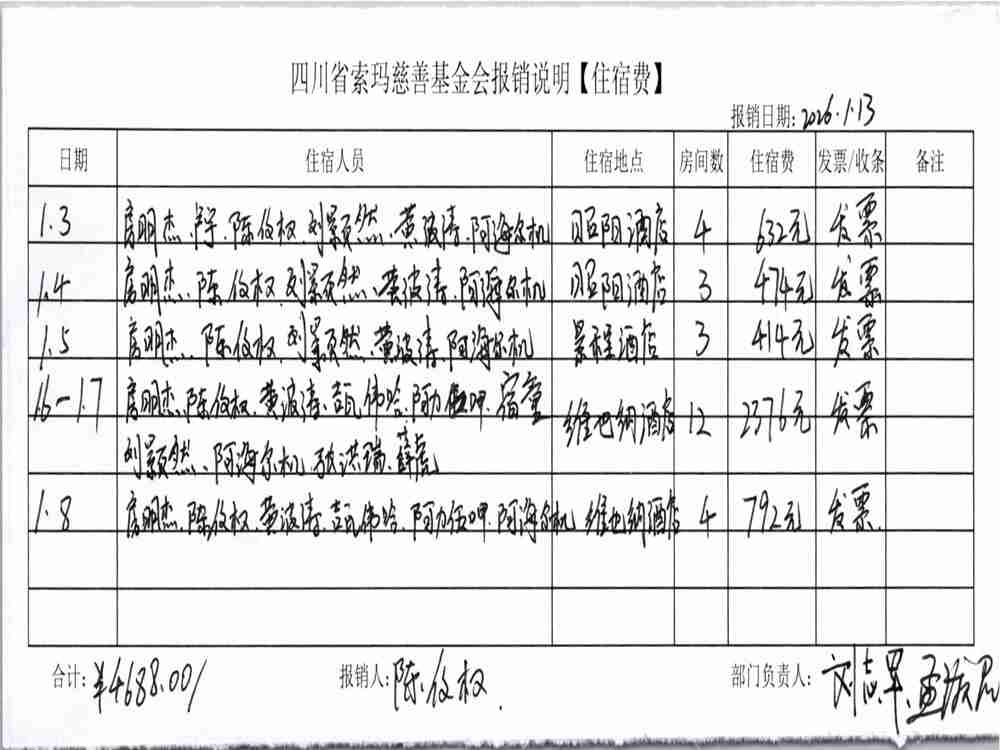 四川省索玛慈善基金会报销说明【住宿费】
报销日期: 2026.1.13
日期 住宿人员 住宿地点 房间数 住宿费 发票/收条 备注
1.3 房明杰、陈俊权、刘颖然、黄波涛、阿海尔机 昭阳酒店 4 632元 发票
1.4 房明杰、陈俊权、刘颖然、黄波涛、阿海尔机 昭阳酒店 3 474元 发票
1.5 房明杰、陈俊权、刘颖然、黄波涛、阿海尔机 景程酒店 3 414元 发票
1.6-1.7 房明杰、陈俊权、黄波涛、吉瓦伟哈、阿力伍呷 维也纳酒店 12 2376元 发票
刘颖然、阿海尔机、张洪瑞、薛虎
1.8 房明杰、陈俊权、黄波涛、吉瓦伟哈、阿力伍呷、阿海尔机 维也纳酒店 4 792元 发票
合计: ¥4688.00/ 报销人: 陈俊权 部门负责人: 刘志军